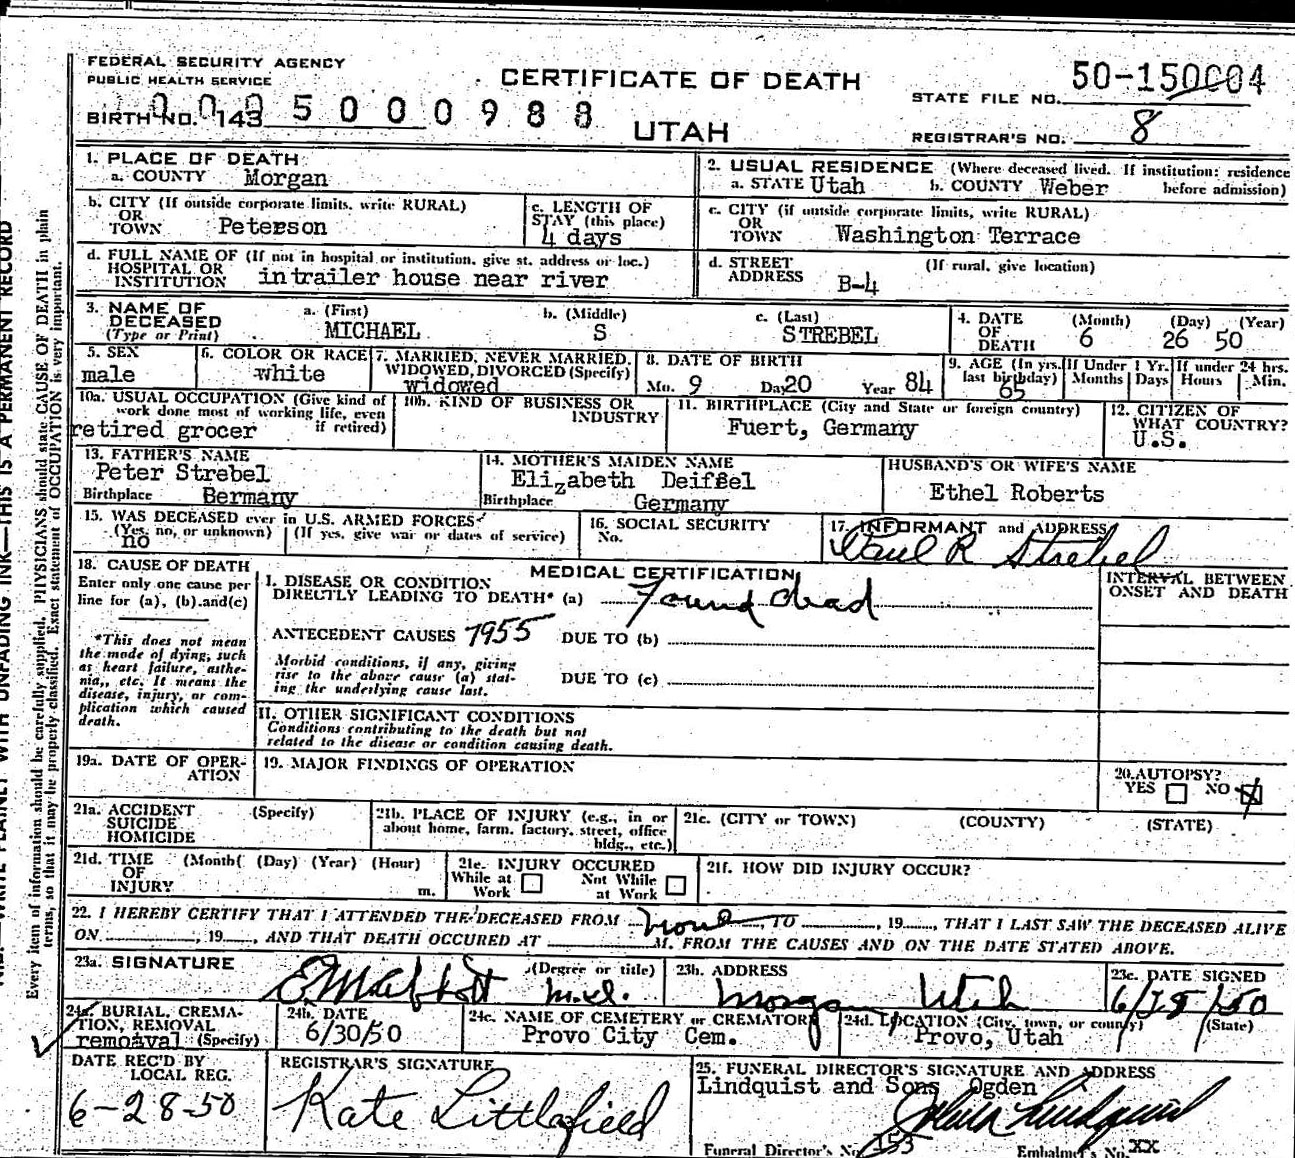 FEDERAL SECURITY AGENCY
PUBLIC HEALTH SERVICE
CERTIFICATE OF DEATH
UTAH
STATE FILE NO. 50-150004
BIRTH NO. 143 5000988
REGISTRAR'S NO. 8
1. PLACE OF DEATH:
a. COUNTY Morgan
2. USUAL RESIDENCE (Where deceased lived. If institution: residence before admission)
a. STATE Utah b. COUNTY Weber
b. CITY (If outside corporate limits, write RURAL)
OR
TOWN Peterson
c. LENGTH OF
STAY (this place)
4 days
c. CITY (if outside corporate limits, write RURAL)
OR
TOWN Washington Terrace
d. FULL NAME OF (If not in hospital or institution, give st. address or loc.)
HOSPITAL OR
INSTITUTION intrailer house near river
d. STREET (If rural, give location)
ADDRESS B-4
3. NAME OF
DECEASED
(Type or Print)
a. (First) MICHAEL
b. (Middle) S
c. (Last) STREBEL
4. DATE
OF
DEATH
(Month) (Day) (Year)
6 26 50
5. SEX
male
6. COLOR OR RACE
white
7. MARRIED, NEVER MARRIED,
WIDOWED, DIVORCED (Specify)
widowed
8. DATE OF BIRTH
Mo. 9 Day 20 Year 84
9. AGE (In yrs.
last birthday)
65
If Under 1 Yr.
Months Days
If under 24 hrs.
Hours Min.
10a. USUAL OCCUPATION (Give kind of
work done most of working life, even
if retired)
retired grocer
10b. KIND OF BUSINESS OR
INDUSTRY
11. BIRTHPLACE (City and State or foreign country)
Fuert, Germany
12. CITIZEN OF
WHAT COUNTRY?
U.S.
13. FATHER'S NAME
Peter Strebel
Birthplace Bermany
14. MOTHER'S MAIDEN NAME
Elizabeth Deifsel
Birthplace Germany
HUSBAND'S OR WIFE'S NAME
Ethel Roberts
15. WAS DECEASED ever in U.S. ARMED FORCES
(Yes, no, or unknown) (If yes, give war or dates of service)
no
16. SOCIAL SECURITY
No.
17. INFORMANT and ADDRESS
Paul R Strebel
18. CAUSE OF DEATH
Enter only one cause per
line for (a), (b) and (c)
*This does not mean
the mode of dying, such
as heart failure, asthe-
nia,, etc. It means the
disease, injury, or com-
plication which caused
death.
MEDICAL CERTIFICATION
I. DISEASE OR CONDITION
DIRECTLY LEADING TO DEATH* (a) Found dead
ANTECEDENT CAUSES 7955 DUE TO (b)
Morbid conditions, if any, giving
rise to the above cause (a) stat-
ing the underlying cause last.
DUE TO (c)
INTERVAL BETWEEN
ONSET AND DEATH
II. OTHER SIGNIFICANT CONDITIONS
Conditions contributing to the death but not
related to the disease or condition causing death.
19a. DATE OF OPER-
ATION
19. MAJOR FINDINGS OF OPERATION
20. AUTOPSY?
YES NO X
21a. ACCIDENT (Specify)
SUICIDE
HOMICIDE
21b. PLACE OF INJURY (e.g., in or
about home, farm, factory, street, office
bldg., etc.)
21c. (CITY or TOWN) (COUNTY) (STATE)
21d. TIME (Month( (Day) (Year) (Hour)
OF
INJURY m.
21e. INJURY OCCURED
While at Work Not While at Work
21f. HOW DID INJURY OCCUR?
22. I HEREBY CERTIFY THAT I ATTENDED THE DECEASED FROM none, TO , 19 , THAT I LAST SAW THE DECEASED ALIVE
ON , 19 , AND THAT DEATH OCCURED AT M. FROM THE CAUSES AND ON THE DATE STATED ABOVE.
23a. SIGNATURE (Degree or title)
M.D.
23b. ADDRESS
Morgan Utah
23c. DATE SIGNED
6/28/50
24a. BURIAL, CREMA-
TION, REMOVAL
(Specify)
remoaval
24b. DATE
6/30/50
24c. NAME OF CEMETERY or CREMATORY
Provo City Cem.
24d. LOCATION (City, town, or county) (State)
Provo, Utah
DATE REC'D BY
LOCAL REG.
6-28-50
REGISTRAR'S SIGNATURE
Kate Littlefield
25. FUNERAL DIRECTOR'S SIGNATURE AND ADDRESS
Lindquist and Sons Ogden
John Lindquist
Funeral Director's No. 153 Embalmer's No. XX
WRITE PLAINLY WITH UNFADING INK—THIS IS A PERMANENT RECORD
Every item of information should be carefully supplied. PHYSICIANS should state CAUSE OF DEATH in plain
terms, so that it may be properly classified. Exact statement of OCCUPATION is very important.